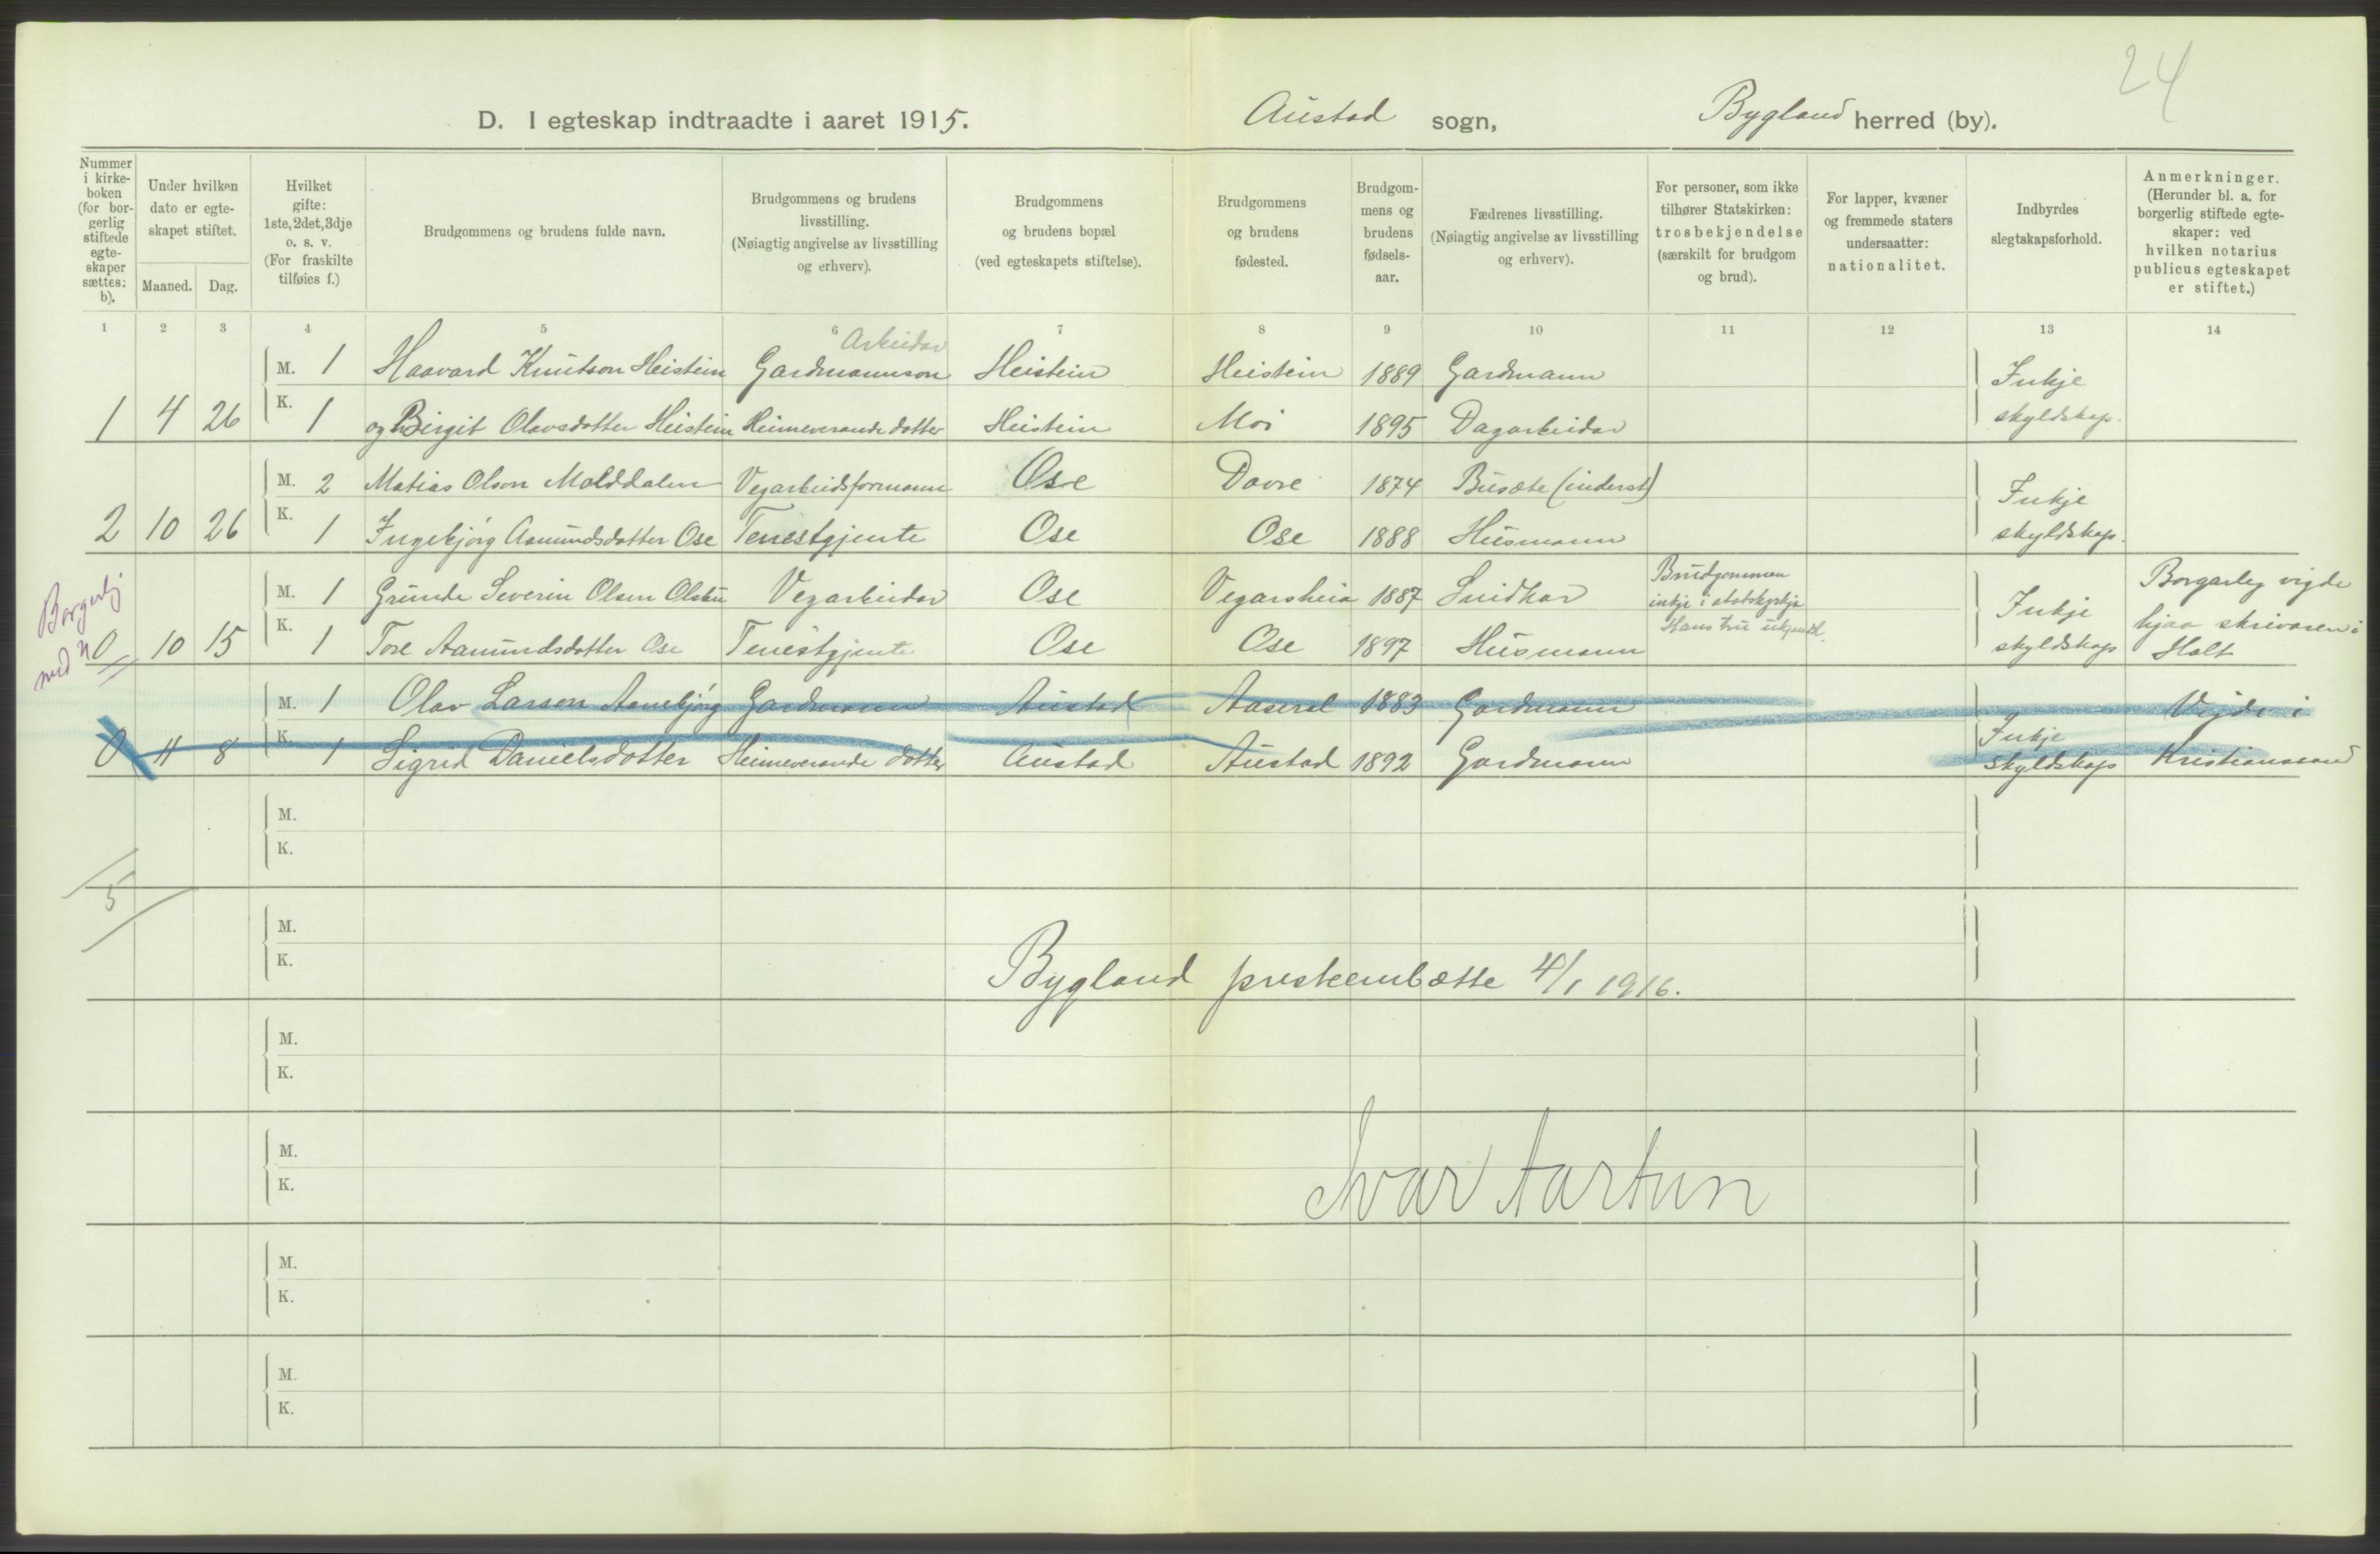 24
D. I egteskap indtraadte i aaret 1915. Austad sogn, Bygland herred (by).
Nummer i kirkeboken (for borgerlig stiftede egteskaper sættes: b).
Under hvilken dato er egteskapet stiftet.
Maaned. Dag.
Hvilket gifte: 1ste, 2det, 3dje o. s. v. (For fraskilte tilføies f.)
Brudgommens og brudens fulde navn.
Brudgommens og brudens livsstilling. (Nøiagtig angivelse av livsstilling og erhverv).
Brudgommens og brudens bopæl (ved egteskapets stiftelse).
Brudgommens og brudens fødested.
Brudgommens og brudens fødselsaar.
Fædrenes livsstilling. (Nøiagtig angivelse av livsstilling og erhverv).
For personer, som ikke tilhører Statskirken: trosbekjendelse (særskilt for brudgom og brud).
For lapper, kvæner og fremmede staters undersaatter: nationalitet.
Indbyrdes slegtskapsforhold.
Anmerkninger. (Herunder bl. a. for borgerlig stiftede egteskaper: ved hvilken notarius publicus egteskapet er stiftet.)
1 2 3 4 5 6 7 8 9 10 11 12 13 14
Arbeidar
M. 1 Haavard Knutson Heistein Gardmannson Heistein Heistein 1889 Gardmann Inkje
1 4 26 K. 1 og Birgit Olavsdotter Heistein Heimeverande dotter Heistein Moi 1895 Dagarbeidar skyldskap.
M. 2 Matias Olson Molddalen Vegarbeidsformann Ose Dovre 1874 Busæte (inderst) Inkje
2 10 26 K. 1 Ingebjörg Aamundsdotter Ose Tenestgjente Ose Ose 1888 Husmann skyldskap.
Borgerlig
M. 1 Grunde Severin Olsen Olstu Vegarbeidar Ose Vegarsheia 1887 Smidkar Brudgommen inkje i statskyrkja Inkje Borgarleg vigde
med n 0 10 15 K. 1 Tore Aamundsdotter Ose Tenestgjente Ose Ose 1897 Husmann Hans tru ukjend. skyldskap hjaa skrivaren i Holt
M. 1 Olav Larson Aanebjörg Gardmann Austad Aaseral 1883 Gardmann Inkje Vigde i
0 11 8 K. 1 Sigrid Danielsdotter Heimeverande dotter Austad Austad 1892 Gardmann skyldskap Kristianssand
M.
K.
5
M.
K.
Bygland presteembætte 4/1 1916.
M.
K.
M.
K.
Ivar Aartun
M.
K.
M.
K.